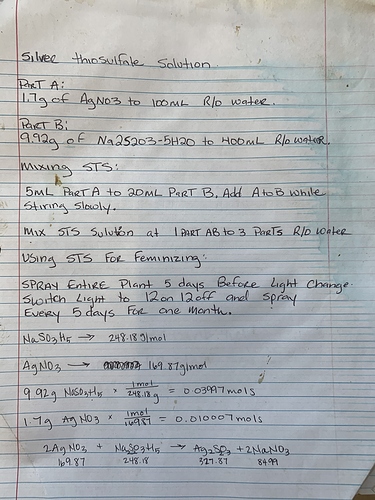 Silver thiosulfate Solution
Part A:
1.7g of AgNO3 to 100mL R/o water.
Part B:
9.92g of Na2S2O3-5H2O to 400mL R/o water.
Mixing STS:
5mL Part A to 20mL Part B. Add A to B while
Stiring Slowly.
Mix STS Solution at 1 Part AB to 3 Parts R/o water
Using STS For Feminizing:
SPRAY ENTIRE Plant 5 days Before Light Change.
Switch Light to 12 on 12 off and Spray
Every 5 days For one Month.
NaSO3H5 → 248.18g/mol
AgNO3 → 169.87g/mol
9.92g NaSO3H5 × 1mol/248.18g = 0.03997mols
1.7g AgNO3 × 1mol/169.87 = 0.010007mols
2AgNO3 + Na2SO3H5 → Ag2SO3 + 2NaNO3
169.87 248.18 327.87 84.99